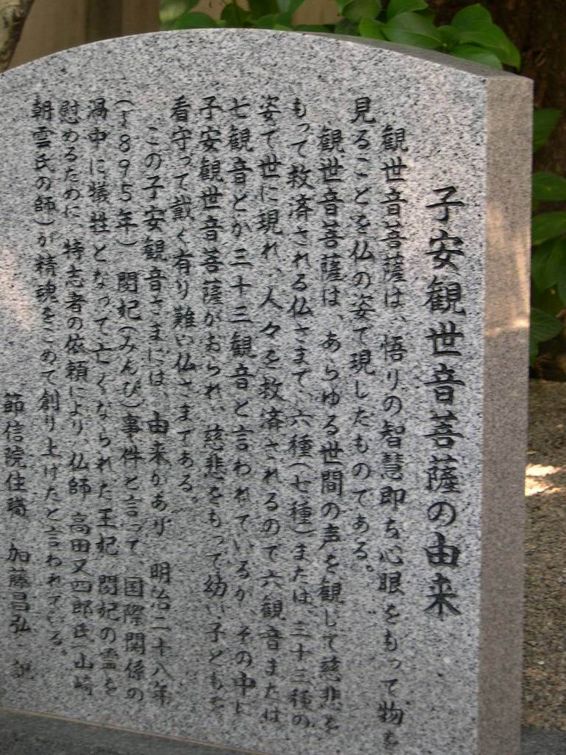 子安観世音菩薩の由来
観世音菩薩は、悟りの智慧即ち心眼をもって物を
見ることを仏の姿で現したものである。
観世音菩薩は、あらゆる世間の声を観じて慈悲を
もって救済される仏さまで、六種(七種)または、三十三種の
姿で世に現れ、人々を救済されるので六観音または
七観音とか三十三観音と言われているが、その中に
子安観世音菩薩がおられ、慈悲をもって幼い子どもを
看守って戴く有り難い仏さまである。
この子安観音さまには、由来があり 明治二十八年
(1895年) 閔妃(みんぴ)事件と言って、国際関係の
渦中に犠牲となって亡くなられた王妃 閔妃の霊を
慰めるために、特志者の依頼により、仏師 高田又四郎氏(山崎
朝雲氏の師)が精魂をこめて創り上げたと言われている。
節信院住職 加藤昌弘 記